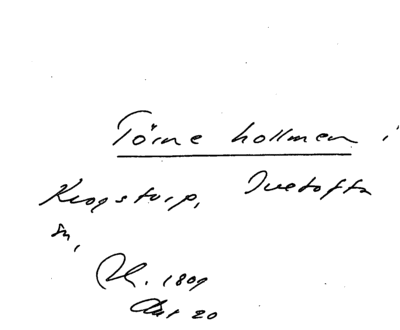 Törne hollmen i
Krogstorp, Ivetofta
sn,
Rh. 1809
Akt 20